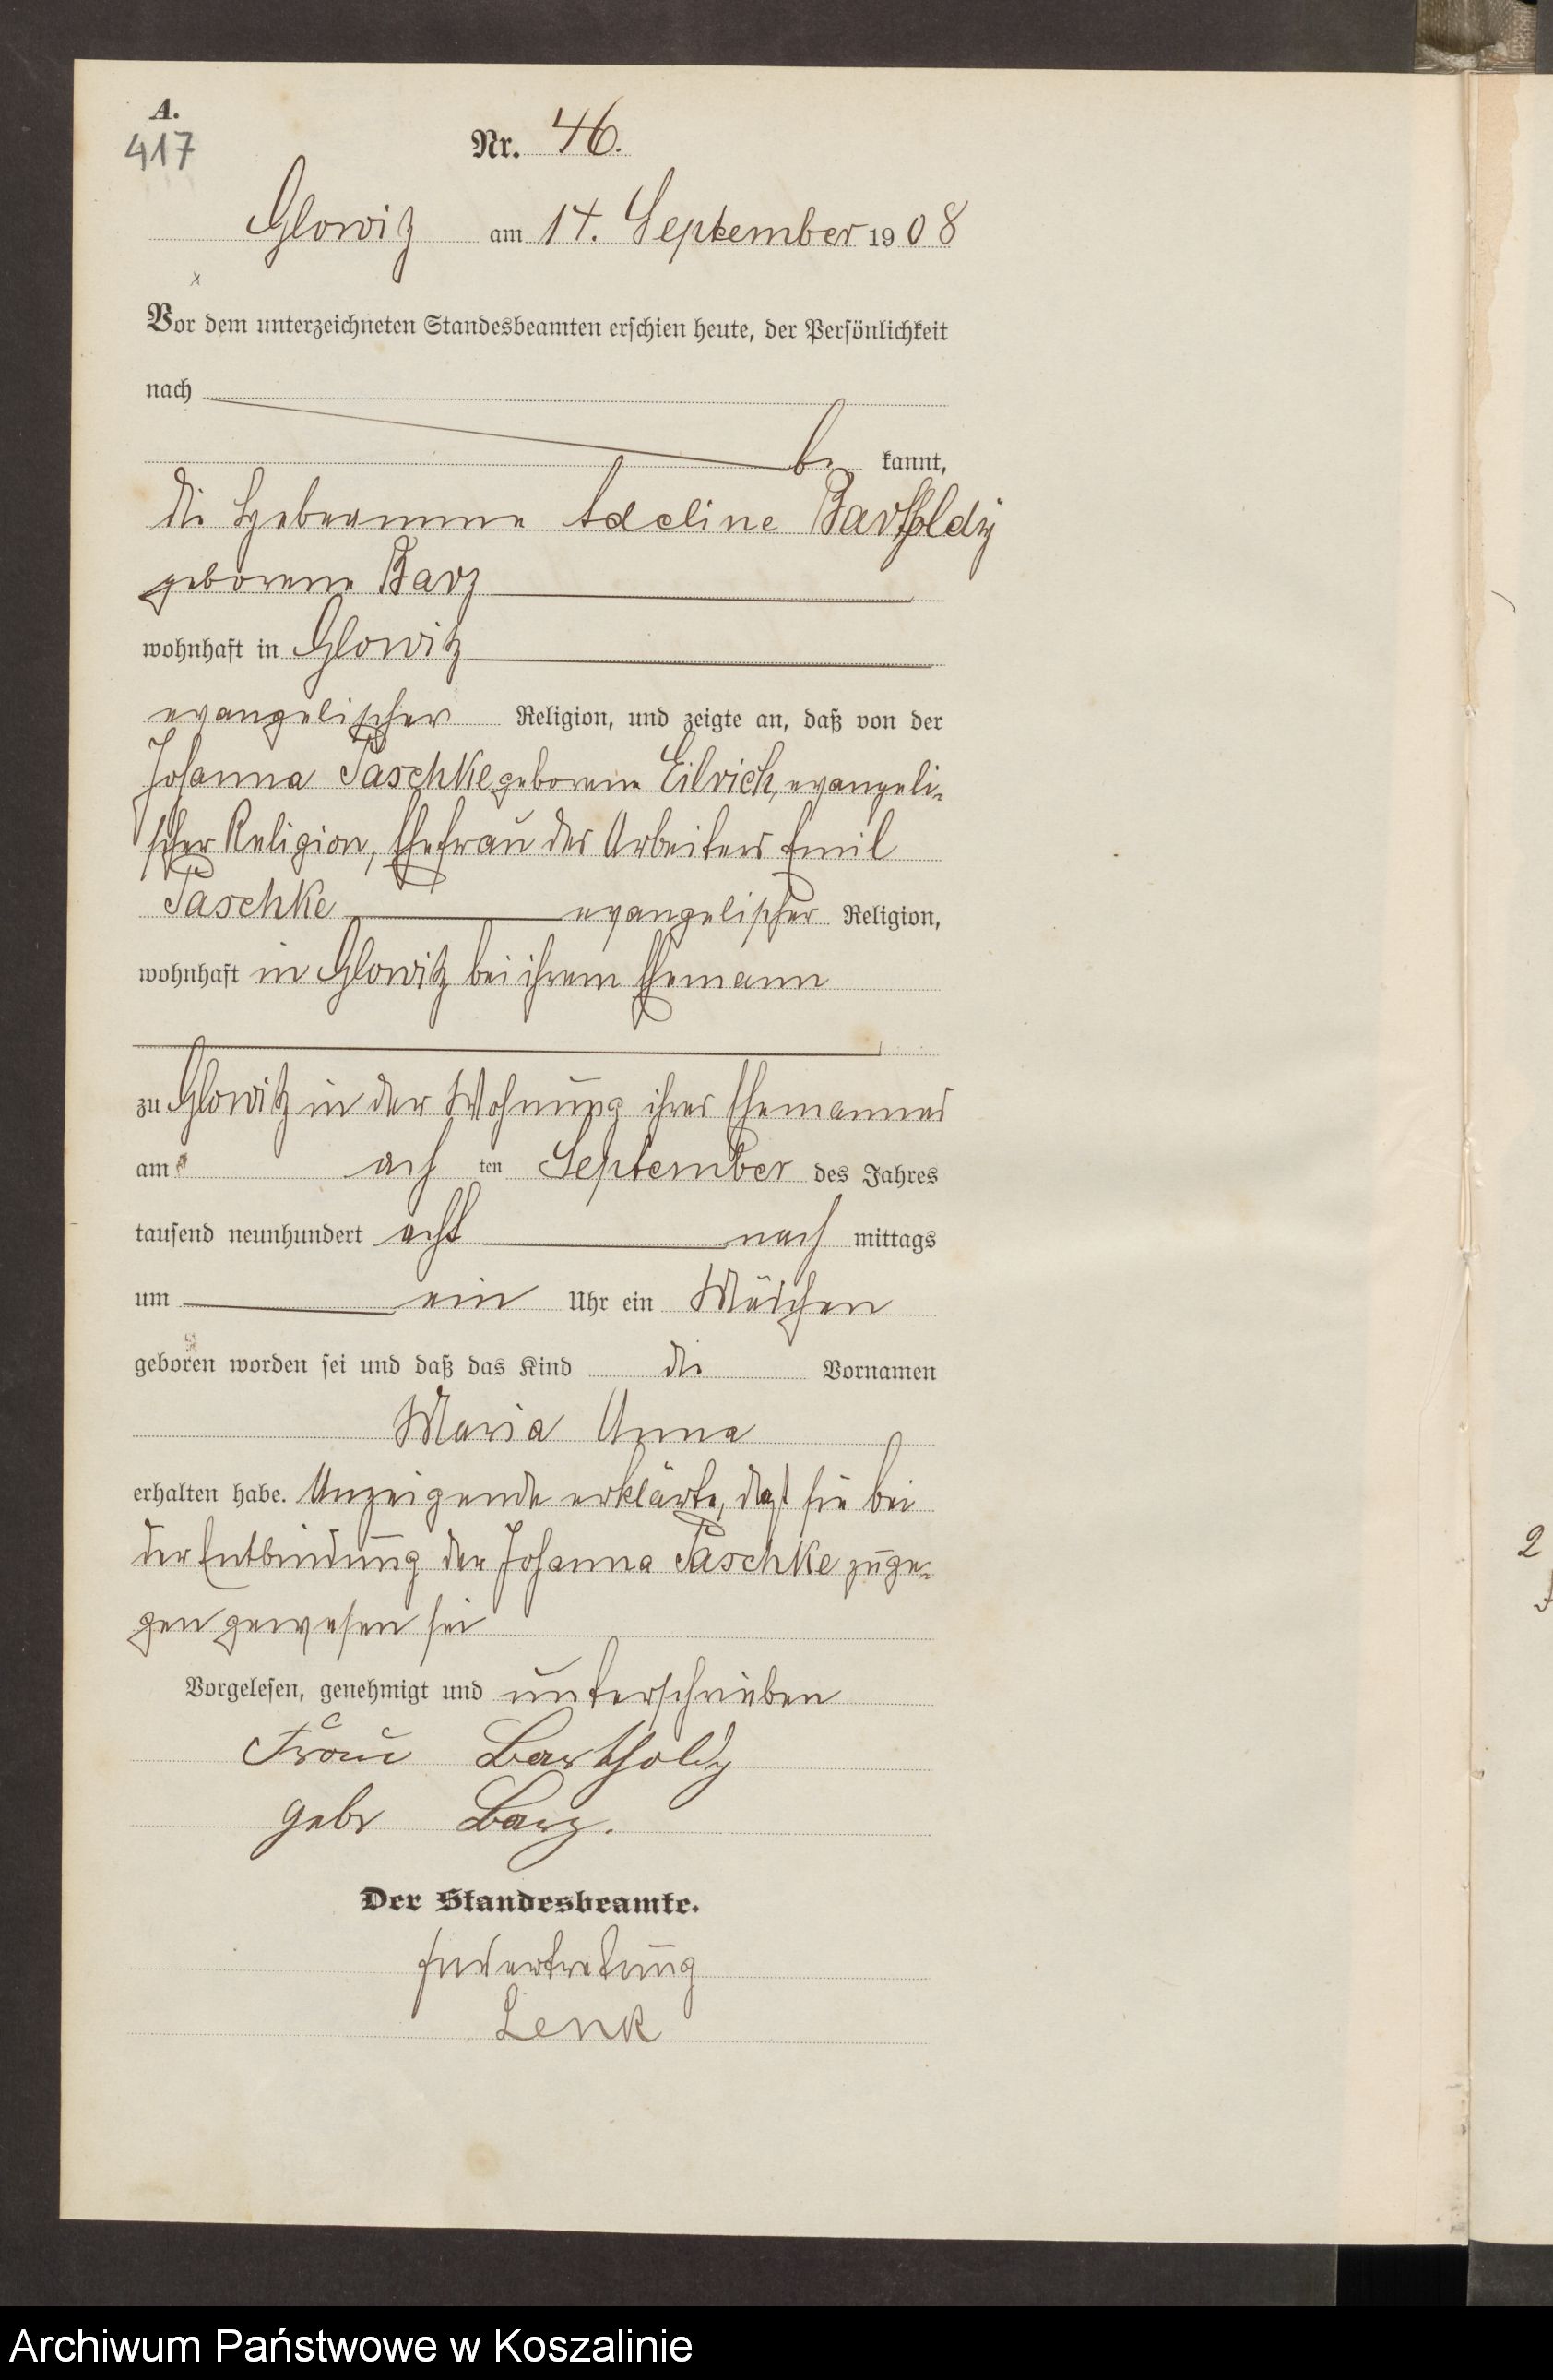 A.
417
Nr. 46.
Glowitz am 14. September 1908
Vor dem unterzeichneten Standesbeamten erschien heute, der Persönlichkeit
nach
be kannt,
die Hebeamme Adeline Bartholdy
geborene Barz
wohnhaft in Glowitz
evangelischer Religion, und zeigte an, daß von der
Johanna Paschke geborene Eilrich, evangeli-
scher Religion, Ehefrau des Arbeiters Emil
Paschke evangelischer Religion,
wohnhaft in Glowitz bei ihrem Ehemann
zu Glowitz in der Wohnung ihres Ehemannes
am ach ten September des Jahres
tausend neunhundert acht nach mittags
um ein Uhr ein Mädchen
geboren worden sei und daß das Kind die Vornamen
Maria Anna
erhalten habe. Anzeigende erklärte, daß sie bei
der Entbindung der Johanna Paschke zuge-
gen gewesen sei
Vorgelesen, genehmigt und unterschrieben
Frau Bartholdy
gebr Barz.
Der Standesbeamte.
In Vertretung
Lenk
2
Archiwum Państwowe w Koszalinie